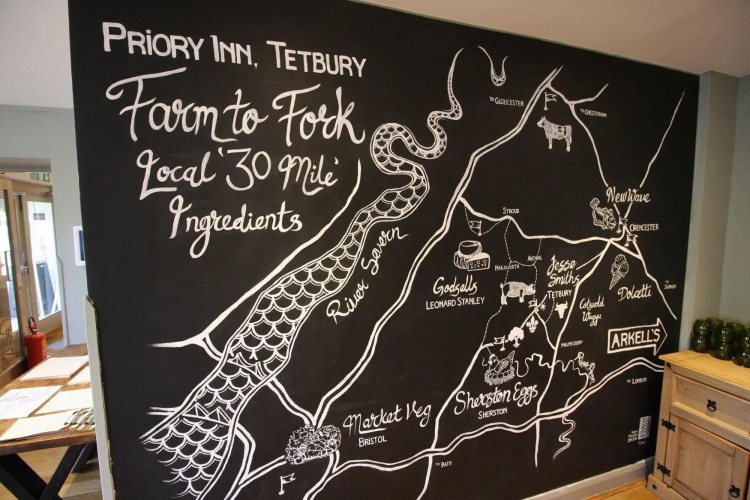 PRIORY INN, TETBURY
Farm to Fork
Local '30 Mile'
Ingredients
TO GLOUCESTER
TO CHELTENHAM
River Severn
New Wave
CIRENCESTER
STROUD
Godsells
LEONARD STANLEY
NAILSWORTH
AVENING
Jesse
Smiths
TETBURY
Cotswold
Wagyu
Dolcetti
TO SWINDON
ARKELL'S
MALMESBURY
TO LONDON
Sherston Eggs
SHERSTON
Market Veg
BRISTOL
TO BATH